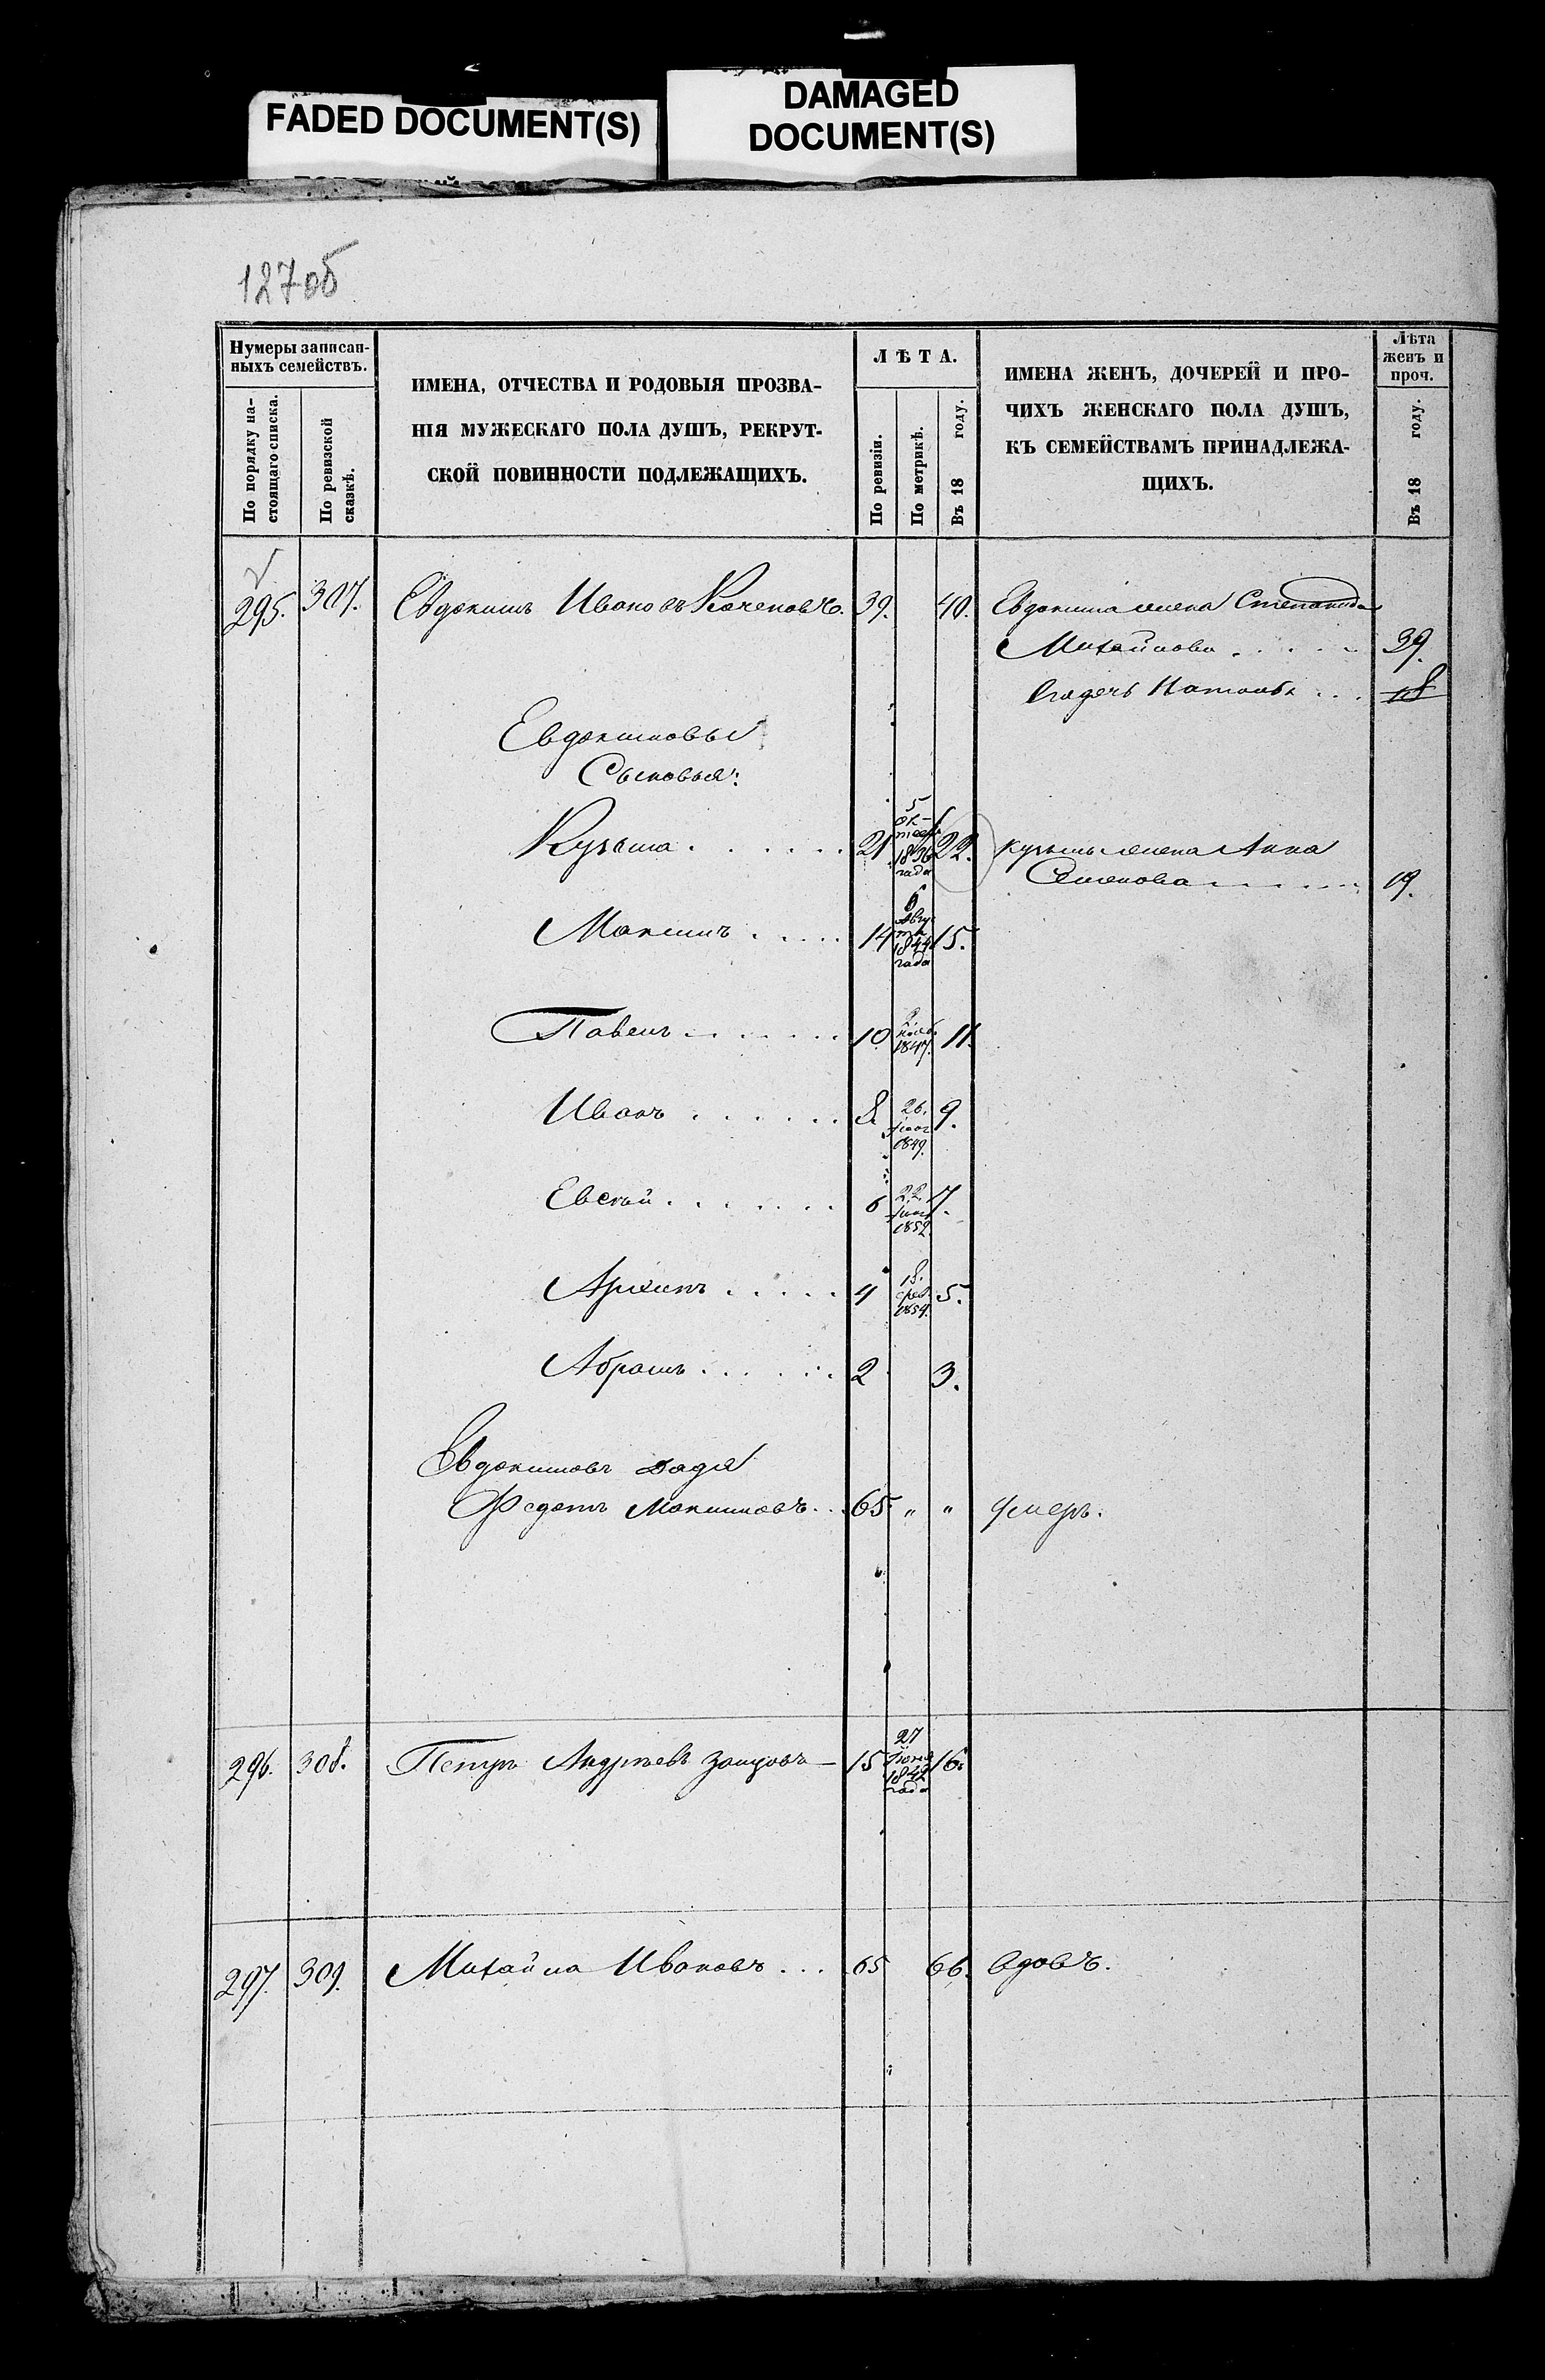 FADED DOCUMENT(S)
DAMAGED
DOCUMENT(S)
127об
Нумеры записан-
ныхъ семействъ.
По порядку на-
стоящаго списка.
По ревизской
сказкѣ.
ИМЕНА, ОТЧЕСТВА И РОДОВЫЯ ПРОЗВА-
НІЯ МУЖЕСКАГО ПОЛА ДУШЪ, РЕКРУТ-
СКОЙ ПОВИННОСТИ ПОДЛЕЖАЩИХЪ.
ЛѢТА.
По ревизіи.
По метрикѣ.
Въ 18 году.
ИМЕНА ЖЕНЪ, ДОЧЕРЕЙ И ПРО-
ЧИХЪ ЖЕНСКАГО ПОЛА ДУШЪ,
КЪ СЕМЕЙСТВАМЪ ПРИНАДЛЕЖА-
ЩИХЪ.
Лѣта
женъ и
проч.
Въ 18 году.
295. 307. Евдокимъ Ивановъ 39. 40. Евдокима жена Степанида
Михайлова 39.
18
Евдокимовы
Сыновья:
Кузьма 21 5 октября 1836 года 22. Кузьмы жена Анна
Семенова 19.
Максимъ 14 6 Августа 1844 года 15.
Павелъ 10 2 нояб. 1847. 11.
Иванъ 8. 26. 1849. 9.
Евсѣй 6 22. 1852. 7.
Архипъ 4 18. фев. 1854. 5.
Абрамъ 2 3.
Евдокимовъ дядя
Федотъ Максимовъ 65 " " умеръ.
296. 308. Петръ Андреевъ Зайцовъ — 15 27 Іюня 1842 года 16.
297. 309. Михайла Ивановъ 65 66. вдовъ.